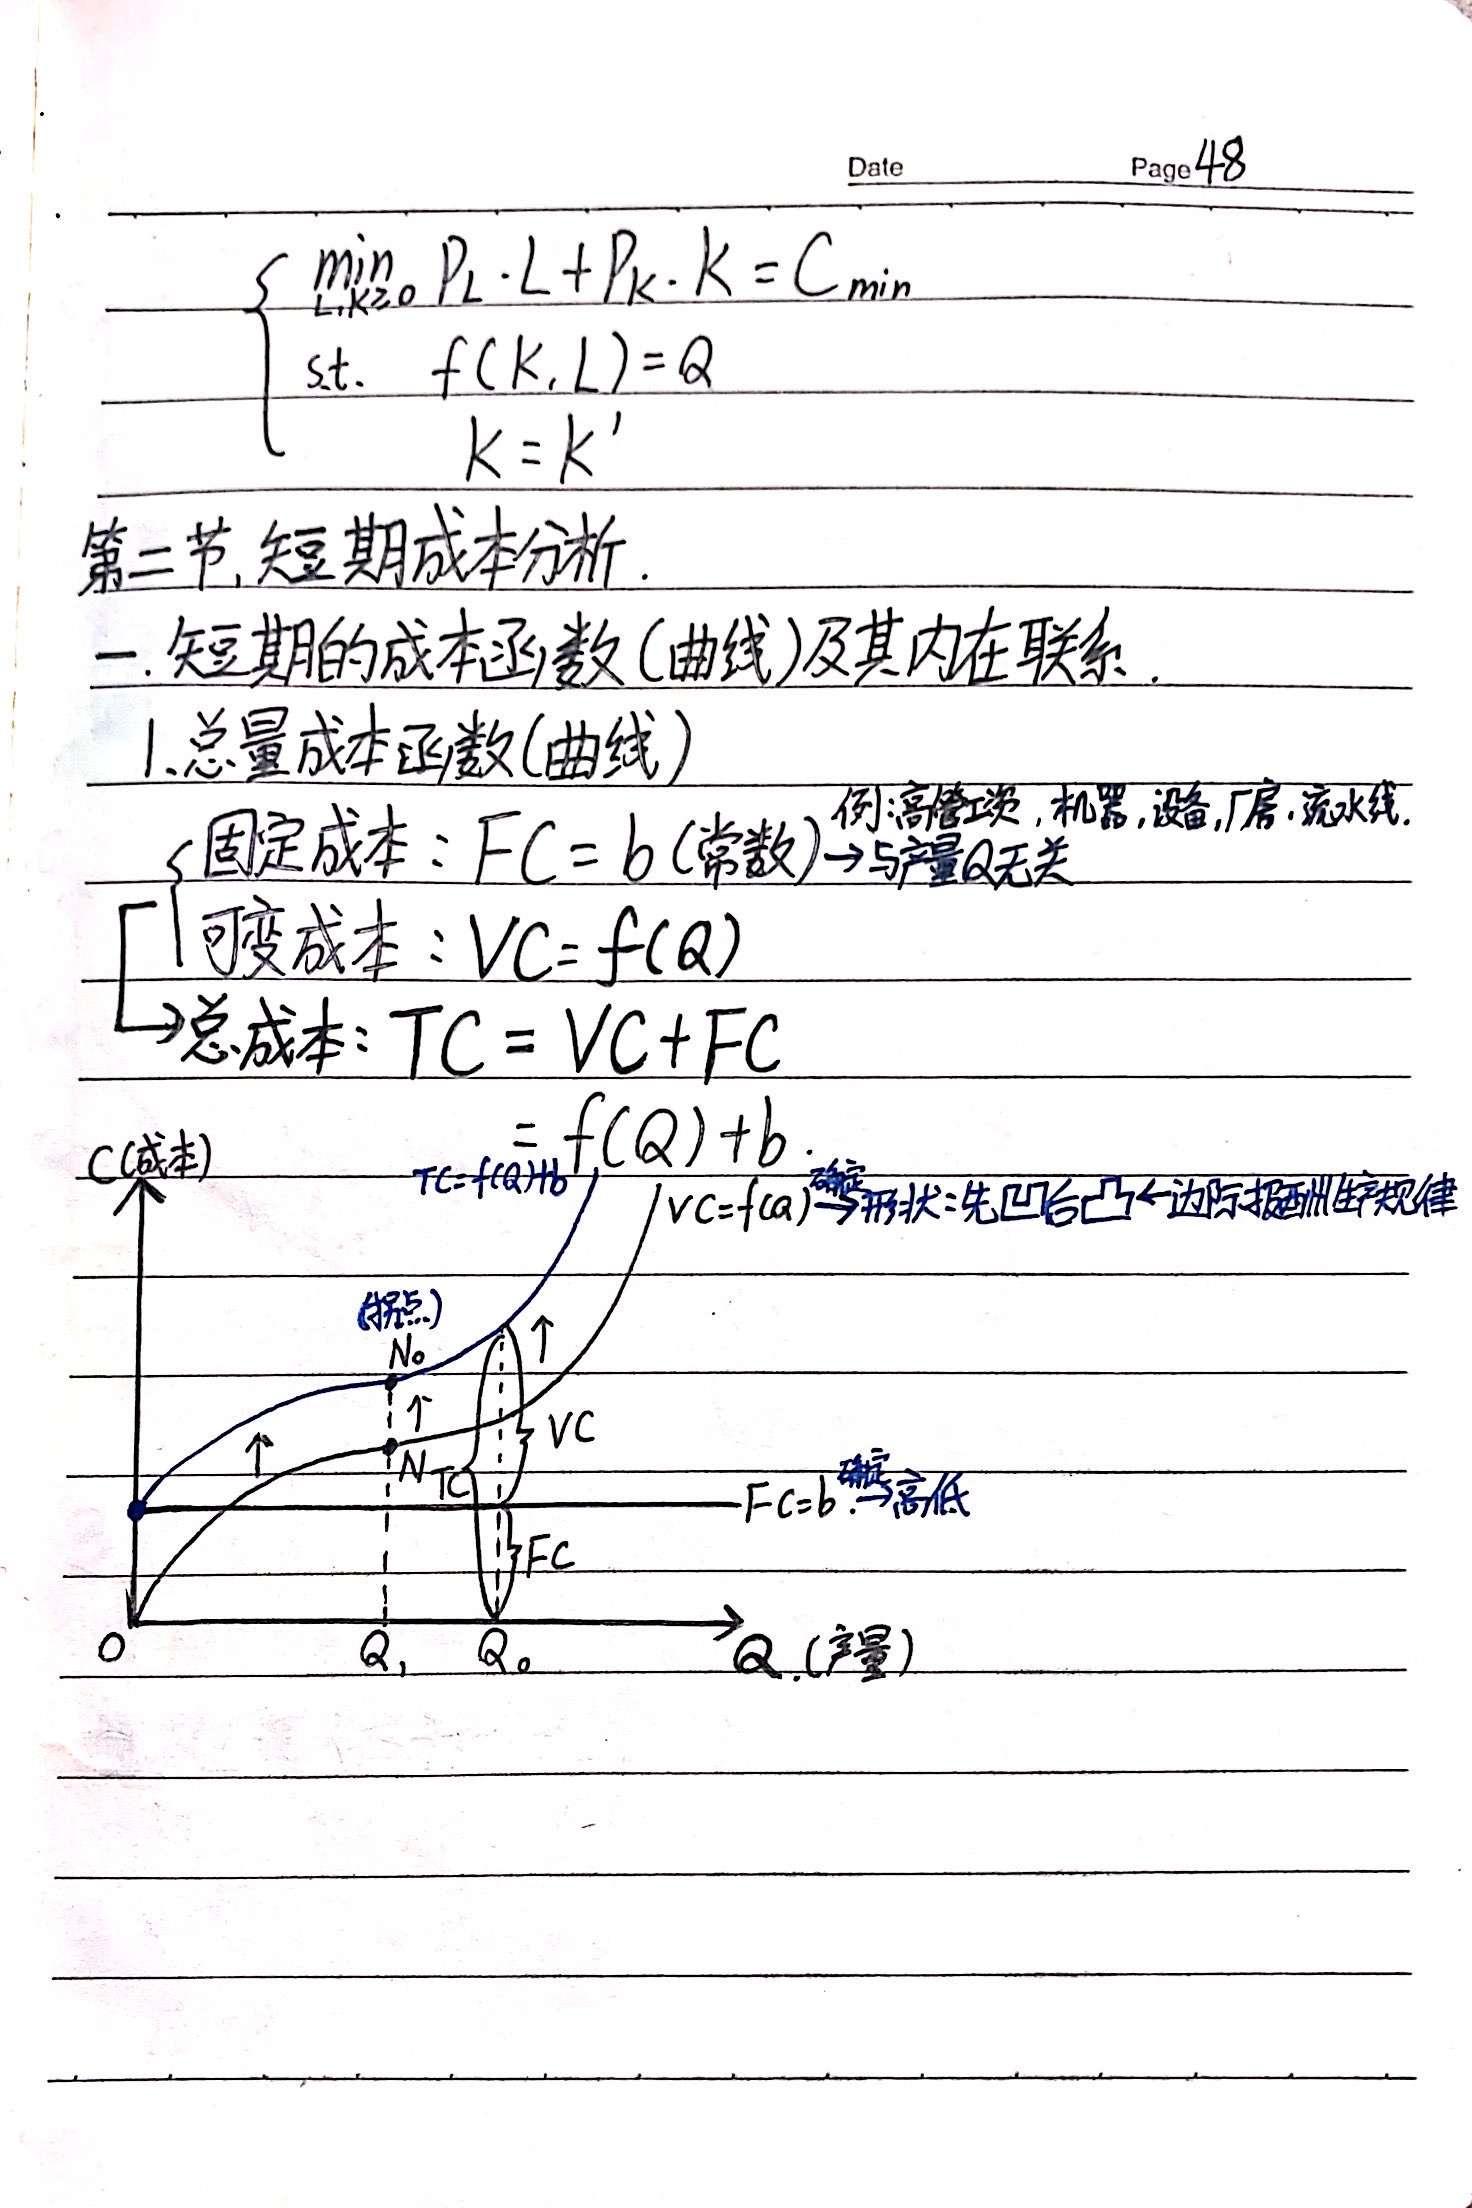 Date Page 48
min P_L·L+P_K·K=C_min
L,K≥0
s.t. f(K,L)=Q
K=K'
第二节,短期成本分析.
一.短期的成本函数(曲线)及其内在联系.
1、总量成本函数(曲线)
例:高管工资,机器,设备,厂房.流水线.
固定成本:FC=b(常数)→与产量Q无关
可变成本:VC=f(Q)
→总成本:TC=VC+FC
=f(Q)+b.
C(成本)
TC=f(Q)+b
VC=f(Q) 确定→形状:先凹后凸←边际报酬生产规律
(拐点)
N₀
VC
N TC
FC=b.确定→高低
FC
O Q₁ Q₀ Q.(产量)